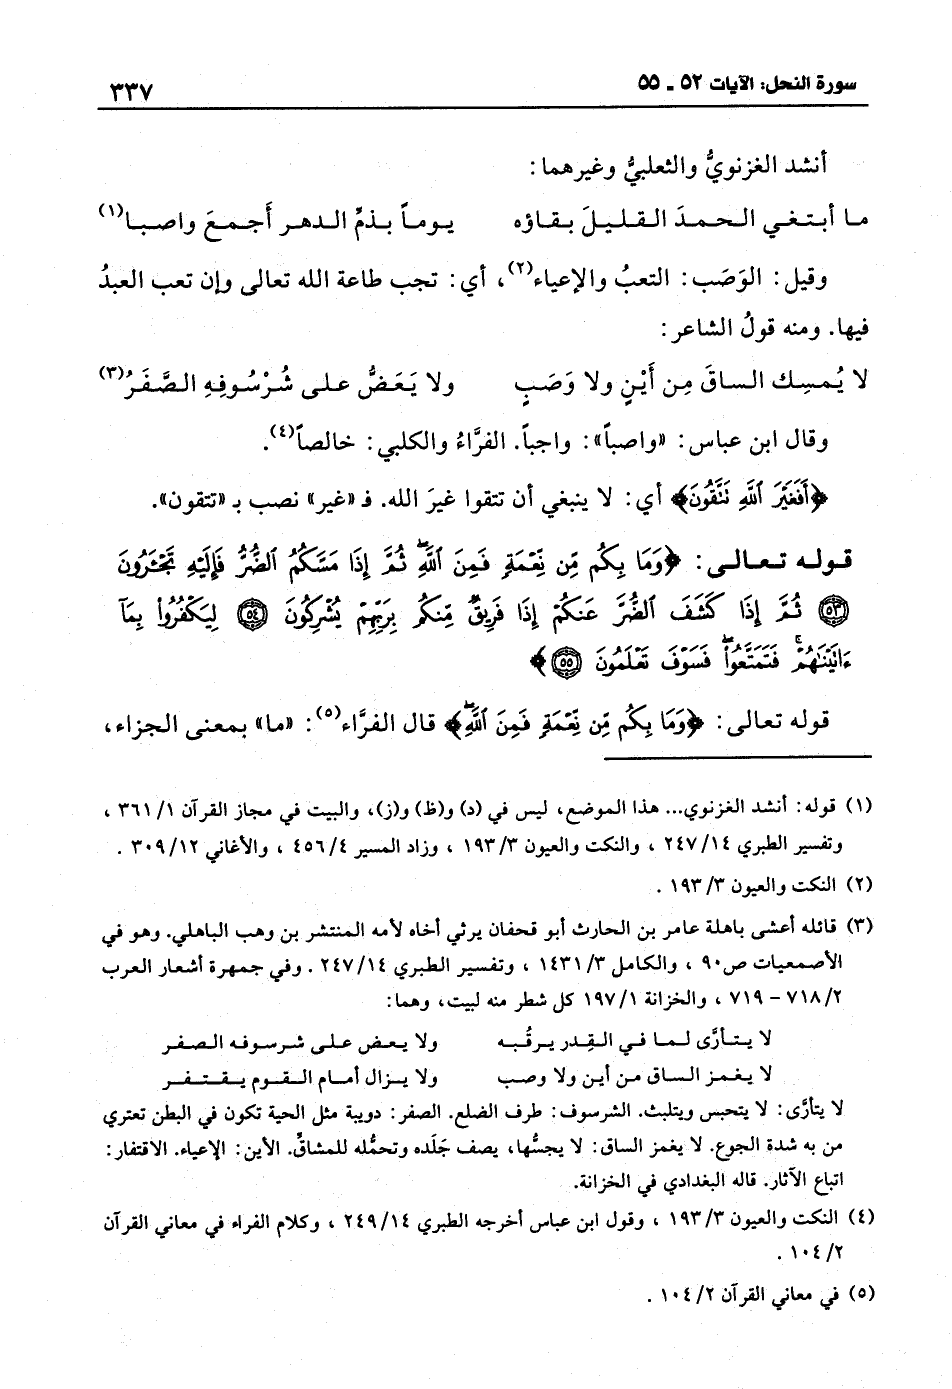 سورة النحل: الآيات ٥٢ ـ ٥٥ ٣٣٧
أنشد الغزنويُّ والثعلبيُّ وغيرهما:
ما أبتغي الحمدَ القليلَ بقاؤه يوماً بذمِّ الدهر أَجمعَ واصبا(١)
وقيل: الوَصَب: التعبُ والإعياء(٢)، أي: تجب طاعة الله تعالى وإن تعب العبدُ
فيها. ومنه قولُ الشاعر:
لا يُمسِك الساقَ مِن أَيْنٍ ولا وَصَبٍ ولا يَعَضُّ على شُرْسُوفِهِ الصَّفَرُ(٣)
وقال ابن عباس: «واصباً»: واجباً. الفرَّاءُ والكلبي: خالصاً(٤).
﴿أَفَغَيْرَ ٱللَّهِ نَنَّقُونَ﴾ أي: لا ينبغي أن تتقوا غيرَ الله. فـ «غير» نصب بـ «تتقون».
قوله تعالى: ﴿وَمَا بِكُم مِّن نِّعْمَةٍ فَمِنَ ٱللَّهِۖ ثُمَّ إِذَا مَسَّكُمُ ٱلضُّرُّ فَإِلَيْهِ تَجْـَٔرُونَ
۝٥٣ ثُمَّ إِذَا كَشَفَ ٱلضُّرَّ عَنكُمْ إِذَا فَرِيقٌ مِّنكُم بِرَبِّهِمْ يُشْرِكُونَ ۝٥٤ لِيَكْفُرُوا۟ بِمَآ
ءَاتَيْنَٰهُمْۚ فَتَمَتَّعُوا۟ۖ فَسَوْفَ تَعْلَمُونَ ۝٥٥﴾
قوله تعالى: ﴿وَمَا بِكُم مِّن نِّعْمَةٍ فَمِنَ ٱللَّهِۖ﴾ قال الفرَّاء(٥): «ما» بمعنى الجزاء،
(١) قوله: أنشد الغزنوي... هذا الموضع، ليس في (د) و(ظ) و(ز)، والبيت في مجاز القرآن ١/ ٣٦١ ،
وتفسير الطبري ١٤/ ٢٤٧ ، والنكت والعيون ٣/ ١٩٣ ، وزاد المسير ٤/ ٤٥٦ ، والأغاني ١٢/ ٣٠٩ .
(٢) النكت والعيون ٣/ ١٩٣ .
(٣) قائله أعشى باهلة عامر بن الحارث أبو قحفان يرثي أخاه لأمه المنتشر بن وهب الباهلي. وهو في
الأصمعيات ص٩٠ ، والكامل ٣/ ١٤٣١ ، وتفسير الطبري ١٤/ ٢٤٧ . وفي جمهرة أشعار العرب
٢/ ٧١٨ - ٧١٩ ، والخزانة ١/ ١٩٧ كل شطر منه لبيت، وهما:
لا يتأرَّى لما في القِدر يرقُبه ولا يعض على شرسوفه الصفر
لا يغمز الساق من أين ولا وصب ولا يزال أمام القوم يقتفر
لا يتأرَّى: لا يتحبس ويتلبث. الشرسوف: طرف الضلع. الصفر: دويبة مثل الحية تكون في البطن تعتري
من به شدة الجوع. لا يغمز الساق: لا يجسُّها، يصف جَلَده وتحمُّله للمشاقِّ. الأين: الإعياء. الاقتفار:
اتباع الآثار. قاله البغدادي في الخزانة.
(٤) النكت والعيون ٣/ ١٩٣ ، وقول ابن عباس أخرجه الطبري ١٤/ ٢٤٩ ، وكلام الفراء في معاني القرآن
٢/ ١٠٤ .
(٥) في معاني القرآن ٢/ ١٠٤ .